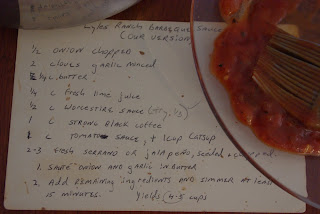 Lyles Ranch Barbeque Sauce
(OUR VERSION)
½ ONION chopped
2 cloves garlic minced
¼ c. butter
¼ c fresh lime juice
½ c Worcestire Sauce (try ⅓)
1 c STRONG Black coffee
1 c TOMATO SAUCE, + 1 cup CATSUP
2-3 fresh serrano or jalapeño, seeded +
1. Saute onion and garlic in butter
2. Add remaining ingredients and simmer at least
15 minutes. Yields (4-5 cups